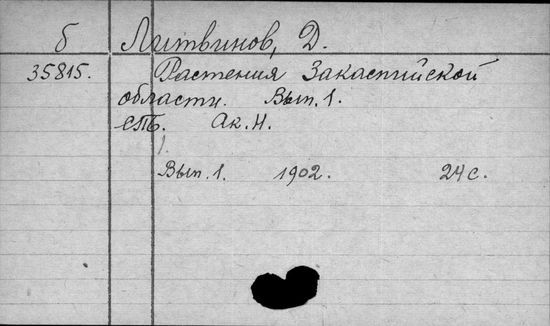 б Литвинов, Д.
35815. Растения Закаспийской
области. Вып. 1.
СПБ. Ак. Н.
1.
Вып. 1. 1902. 24 с.